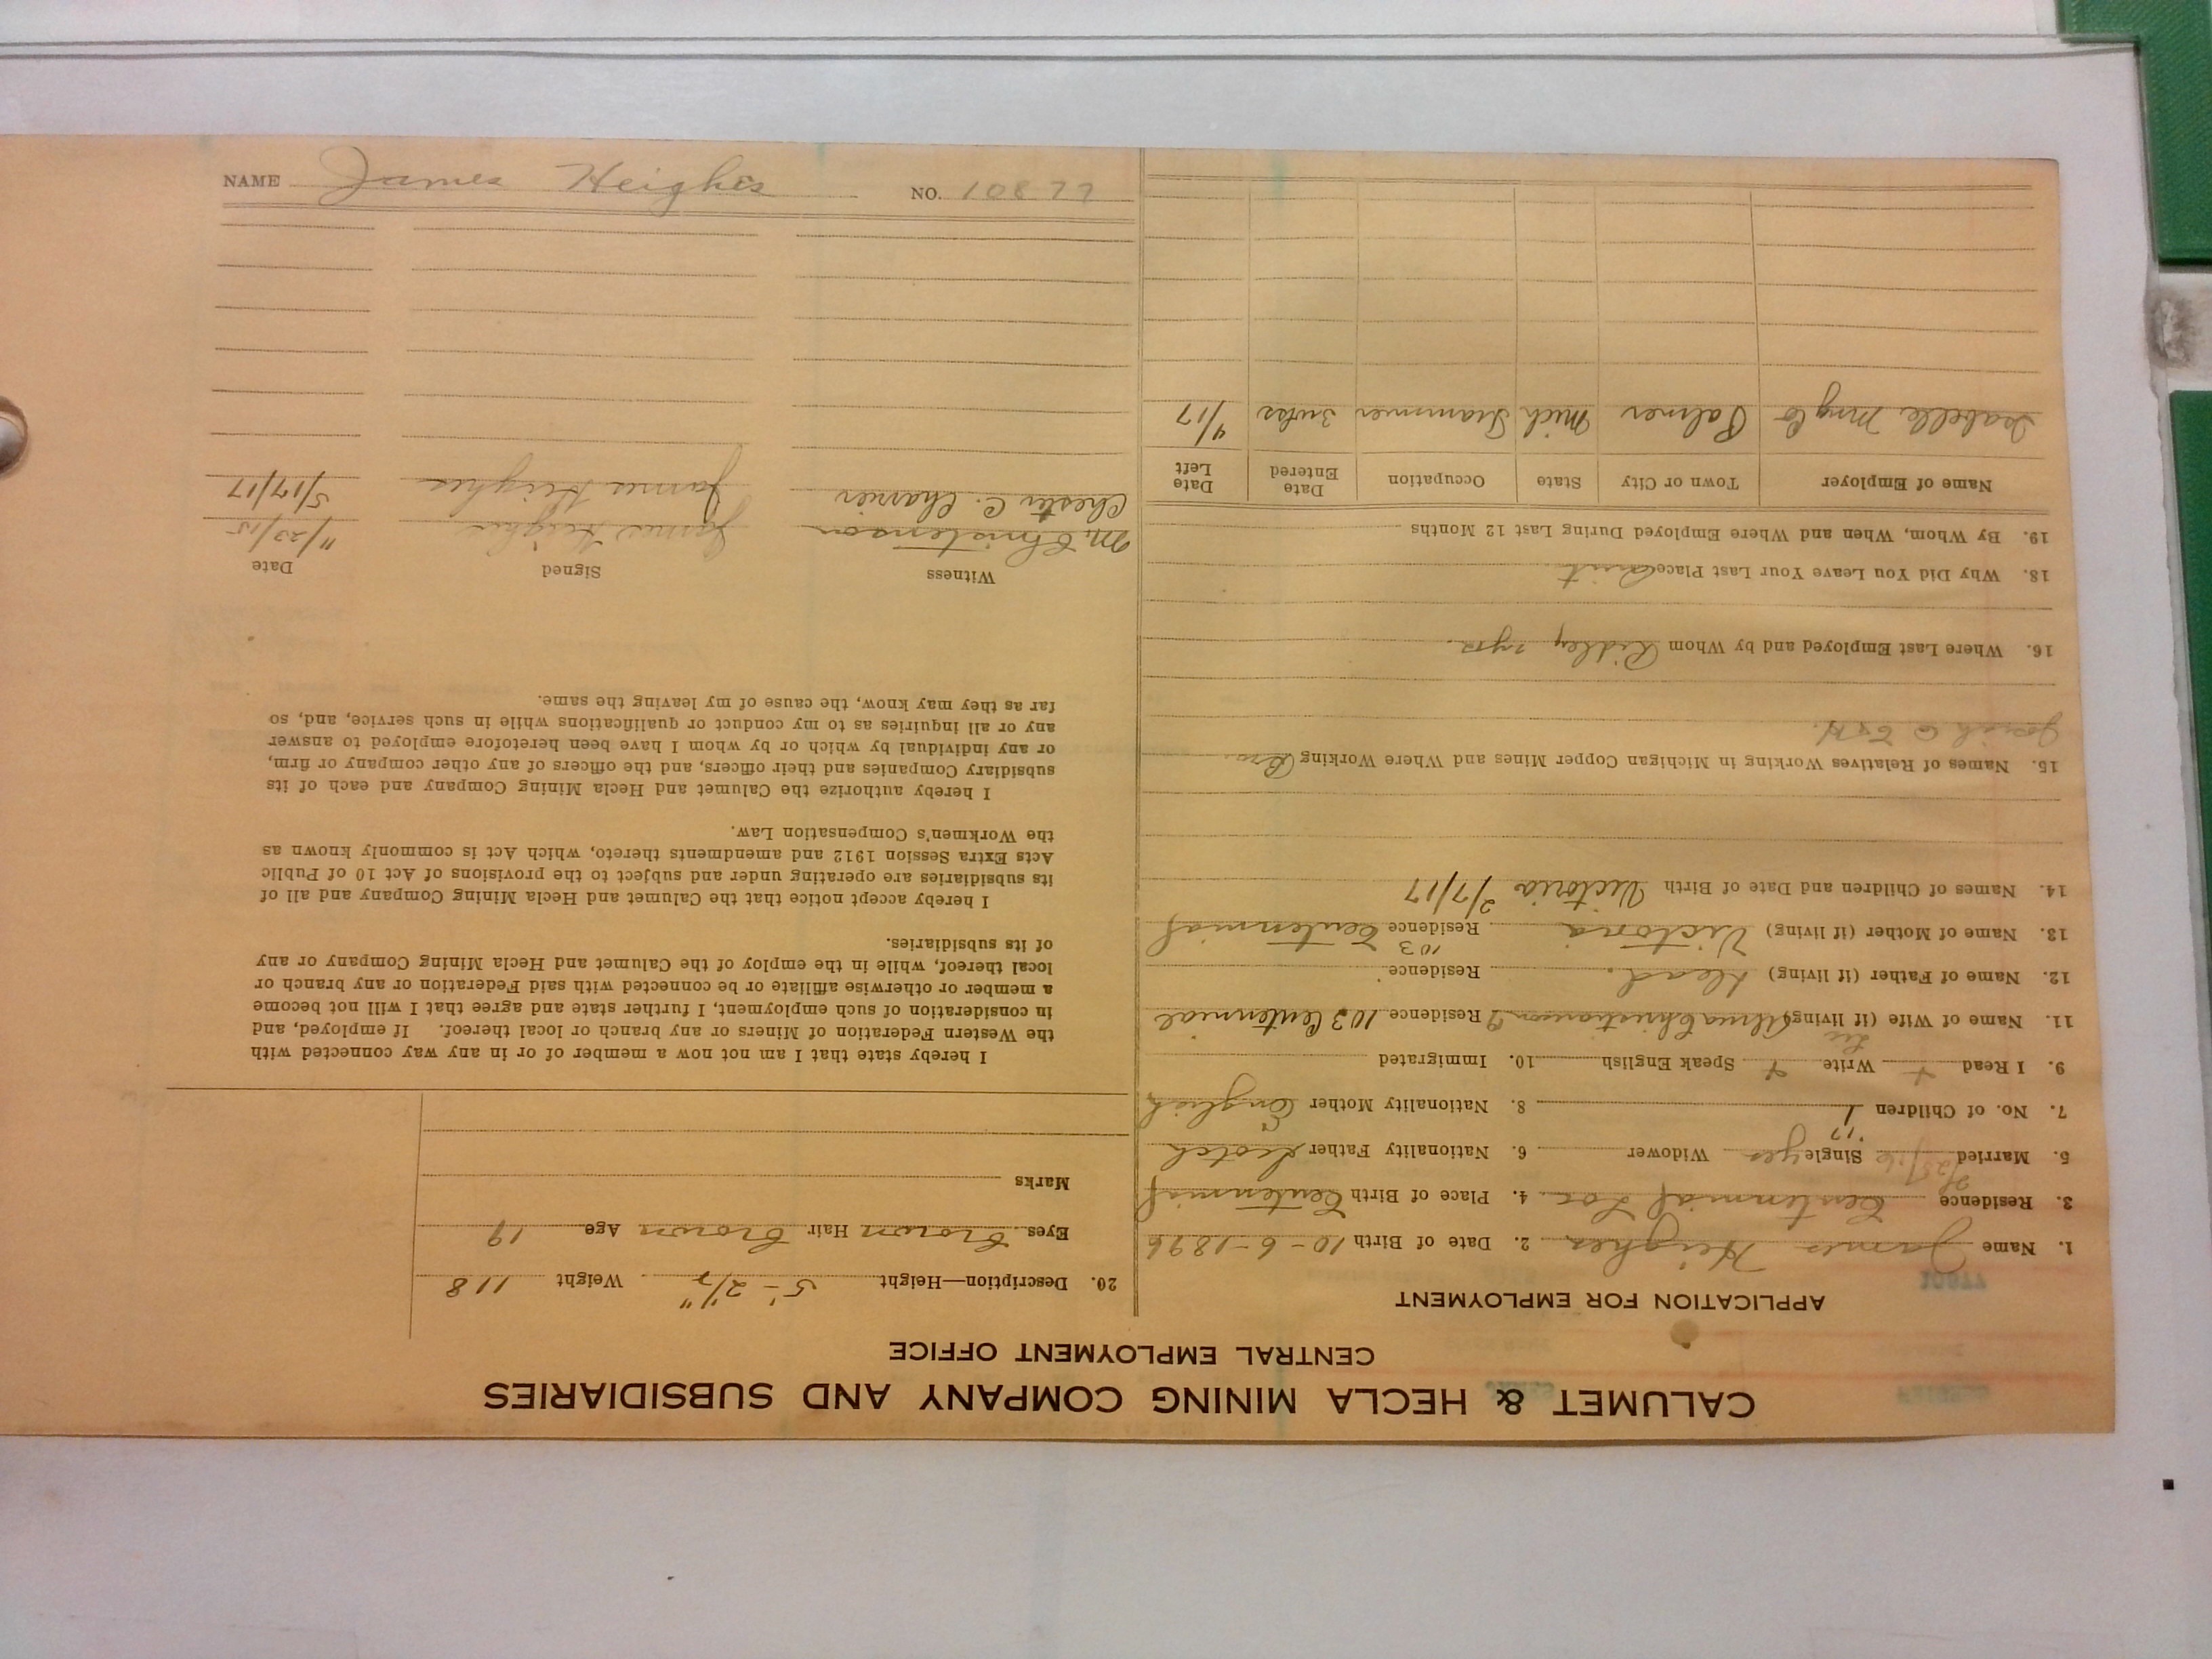 CALUMET & HECLA MINING COMPANY AND SUBSIDIARIES
CENTRAL EMPLOYMENT OFFICE
APPLICATION FOR EMPLOYMENT
1. Name James Heighes 2. Date of Birth 10-6-1896
3. Residence Centennial Loc. 4. Place of Birth Centennial
5. Married Single yes Widower 6. Nationality Father Scotch
'17
7. No. of Children 1 8. Nationality Mother English
9. I Read + Write + Speak English 10. Immigrated
11. Name of Wife (if living) Residence 103 Centennial
12. Name of Father (if living) Dead. Residence
13. Name of Mother (if living) Victoria Residence 103 Centennial
14. Names of Children and Date of Birth Victoria 2/7/17
15. Names of Relatives Working in Michigan Copper Mines and Where Working Bro.
Josiah @ C & H.
16. Where Last Employed and by Whom Ridley 2 yrs.
18. Why Did You Leave Your Last Place Quit
19. By Whom, When and Where Employed During Last 12 Months
Name of Employer Town or City State Occupation Date Entered Date Left
Isabella Mng Co Palmer Mich Trammer 3 wks 4/17
20. Description—Height 5'-2 1/2" Weight 118
Eyes Brown Hair Brown Age 19
Marks
I hereby state that I am not now a member of or in any way connected with
the Western Federation of Miners or any branch or local thereof. If employed, and
in consideration of such employment, I further state and agree that I will not become
a member or otherwise affiliate or be connected with said Federation or any branch or
local thereof, while in the employ of the Calumet and Hecla Mining Company or any
of its subsidiaries.
I hereby accept notice that the Calumet and Hecla Mining Company and all of
its subsidiaries are operating under and subject to the provisions of Act 10 of Public
Acts Extra Session 1912 and amendments thereto, which Act is commonly known as
the Workmen's Compensation Law.
I hereby authorize the Calumet and Hecla Mining Company and each of its
subsidiary Companies and their officers, and the officers of any other company or firm,
or any individual by which or by whom I have been heretofore employed to answer
any or all inquiries as to my conduct or qualifications while in such service, and, so
far as they may know, the cause of my leaving the same.
Witness Signed Date
M. Christenson James Heighes 11/23/15
Chester C. Charrier James Heighes 5/17/17
NAME James Heighes NO. 10877